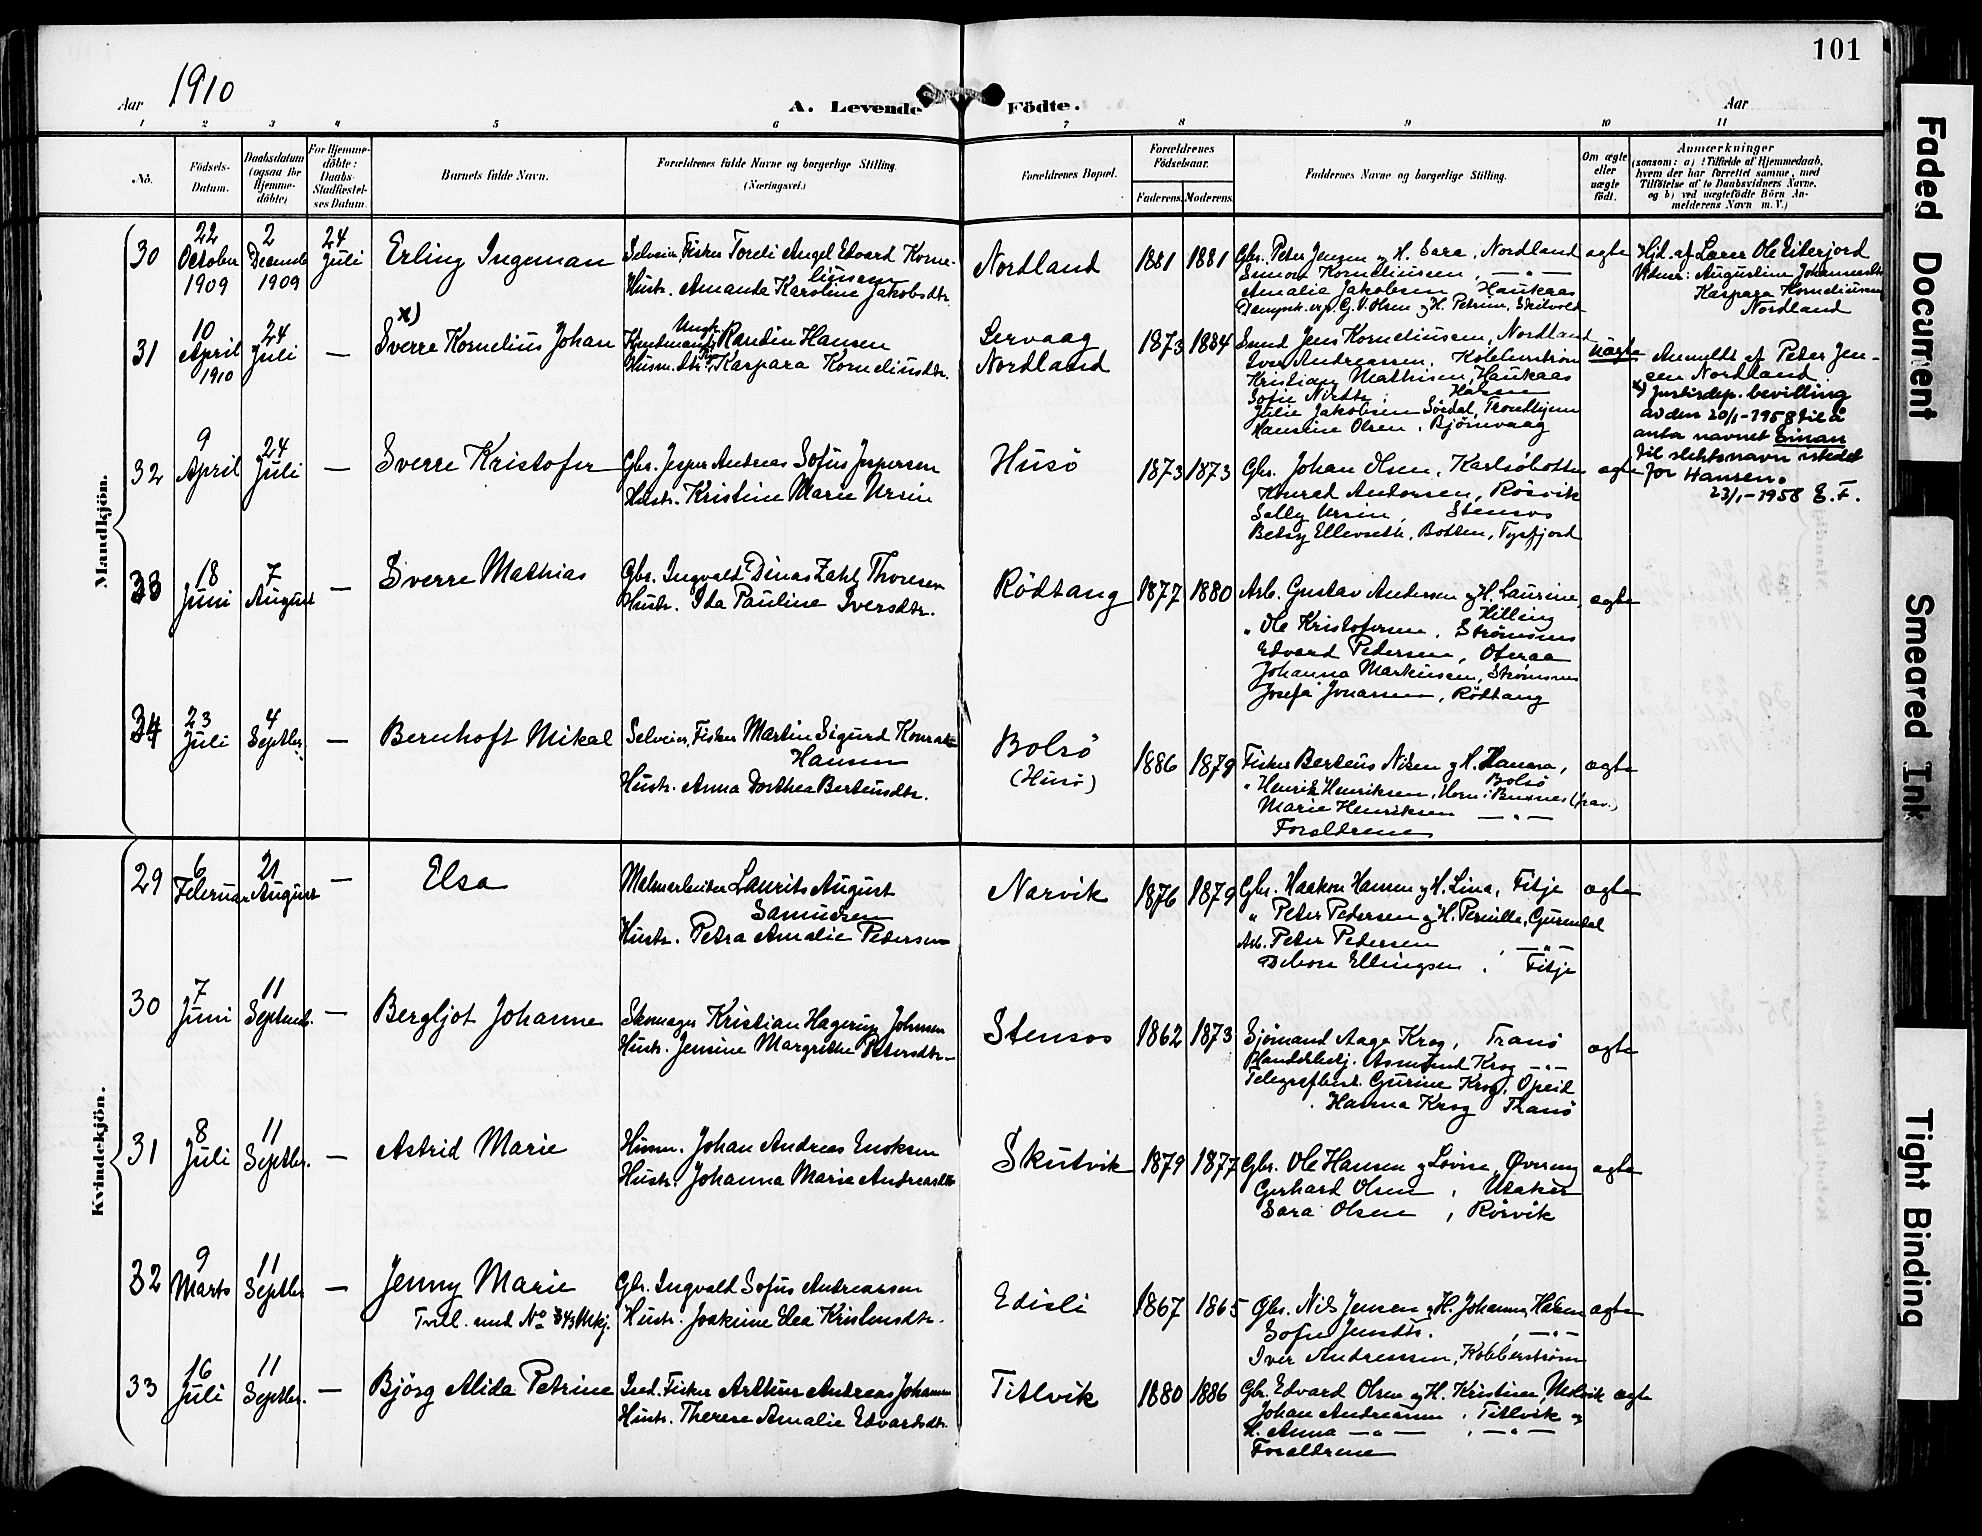 101
Aar 1910
A. Levende Födte.
Aar
1 2 3 4 5 6 7 8 9 10 11
No.
Födsels-Datum.
Daabsdatum (ogsaa for Hjemme-döbte)
For Hjemme-döbte: Daabs-Stadfæstel-ses Datum.
Barnets fulde Navn.
Forældrenes fulde Navne og borgerlige Stilling.
(Næringsvei.)
Forældrenes Bopæl.
Forældrenes Födselsaar.
Faderens. Moderens.
Faddernes Navne og borgerlige Stilling.
Om ægte eller uægte födt.
Anmærkninger
(saasom: a) i Tilfælde af Hjemmedaab,
hvem der har forrettet samme, med
Tilföielse af to Daabsvidners Navne,
og b) ved uægtefödte Börn An-
melderens Navn m. V.)
Mandkjön.
30
22 October 1909
2 Decemb 1909
24 Juli
Erling Ingeman
Selveier, Fisker Toreli Angel Edvard Korne-
liusen
Hustr. Amanda Karoline Jakobsdtr.
Nordland
1881 1881
Gbr. Peter Jensen og H. Sara, Nordland
Simon Korneliussen, — " —
Amalia Jakobsen, Haukaas
Dampsk.exp. G. V. Olsen og H. Petrine, Skilvold
ægte
Hjd. af Lærer Ole Eiterjord
Vidner: Augustine Johannesdtr
Kaspara Korneliussen
Nordland
31
10 April 1910
24 Juli
—
x)
Sverre Kornelius Johan
Ungk.
Kjøbmand Randin Hansen
Husm. dtr. Pige Kaspara Korneliusdtr.
Servaag
Nordland
1873 1884
Smed Jens Korneliussen, Nordland
Iver Andreassen, Kobberstrøm
Kristian Mathisen, Haukaas
Sofie Nilsdtr, Halsen
Julie Jakobsen Sørdal, Trondhjem
Hansine Olsen, Bjørnvaag
uægte
Anmeldt af Peter Jen-
sen Nordland.
x) Justisdep. bevilling
av den 20/1-1958 til å
anta navnet Einan
til slektsnavn istedet
for Hansen.
23/1-1958 E.F.
32
9 April
24 Juli
—
Sverre Kristofer
Gbr. Jesper Andreas Sofus Jespersen
Hustr. Kristine Marie Ursin
Husö
1873 1873
Gbr. Johan Olsen, Karlsöbotten
Konrad Andersen, Rösvik
Selly Ursin, Stensos
Betsy Ellevseth, Botten, Tysfjord
ægte
33
18 Juni
7 August
—
Sverre Mathias
Gbr. Ingvald Dinas Zahl Thoresen
Hustr. Ida Pauline Iversdtr.
Rödtang
1877 1880
Arb. Gustav Andersen og H. Laurine,
Hilling
" Ole Kristofersen, Strømsnes
Edvard Pedersen, Oteraa
Johanna Markussen, Strømsnes
Josefa Jonassen, Rödtang
ægte
34
23 Juli
4 Septbr.
—
Bernhoft Mikal
Selveier, Fisker Martin Sigurd Konrad
Hansen
Hustr. Anna Dorthea Berteusdtr.
Bolsö
(Husö)
1886 1879
Fisker Berteus Nilsen og H. Hanna,
Bolsö
" Henrik Henriksen, Horn i Buxnes (frav.)
Marie Henriksen — " —
Forældrene
ægte
Kvindekjön.
29
6 Februar
21 August
—
Elsa
Malmarbeider Laurits August
Samuelsen
Hustr. Petra Amalie Pedersen
Narvik
1876 1879
Gbr. Haakon Hansen og H. Lina, Fitje
" Peter Pedersen og H. Pernille, Gjurendal
Arb. Peter Pedersen — " —
Ellingsen, Fitje
ægte
30
7 Juni
11 Septemb.
—
Bergljot Johanne
Skomager Kristian Hagerup Johnsen
Hustr. Jensine Margrethe Petersdtr.
Stensos
1862 1873
Sjømand Aage Krog, Tranö
Handelsbetj. Asmund Krog — " —
Telegrafbest. Gurine Krog, Opeid
Hanna Krog Tranö
ægte
31
8 Juli
11 Septbr.
—
Astrid Marie
Husm. Johan Andreas Enoksen
Hustr. Johanna Marie Andreasdtr
Skutvik
1879 1877
Gbr. Ole Hansen og Lovise, Øvereng
Gerhard Olsen, Utaker
Sara Olsen, Rörvik
ægte
32
9 Marts
11 Septbr
—
Jenny Marie
Tvill. med No 34/3 Mkj.
Gbr. Ingvald Sofus Andreassen
Hustr. Joakime Elea Kristensdtr.
Edisli
1867 1865
Gbr. Nils Jensen og H. Johanna, Halsen
Sofie Jensdtr. , — " —
Iver Andreassen, Kobberstrøm
ægte
33
16 Juli
11 Septbr.
—
Björg Alida Petrine
Ind. Fisker Arthur Andreas Johansen
Hustr. Therese Amalie Edvardsdtr.
Titlvik
1880 1886
Gbr. Edvard Olsen og H. Kristine, Ulsvik
Johan Andreassen, Titlvik og
H. Anna — " — , — " —
Forældrene
ægte
Faded Document
Smeared Ink
Tight Binding